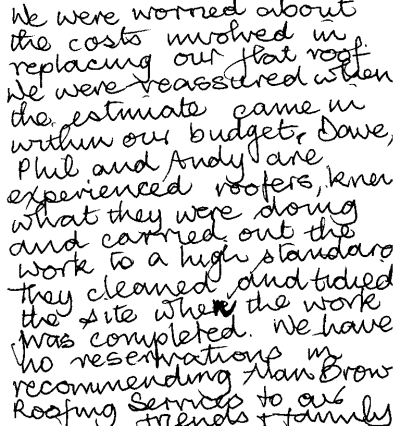 We were worried about
the costs involved in
replacing our flat roof.
We were reassured when
the estimate came in
within our budget. Dave,
Phil and Andy are
experienced roofers, knew
what they were doing
and carried out the
work to a high standard
they cleaned and tidied
the site when the work
was completed. We have
no reservations in
recommending Alan Brow
Roofing Services to our
friends + family